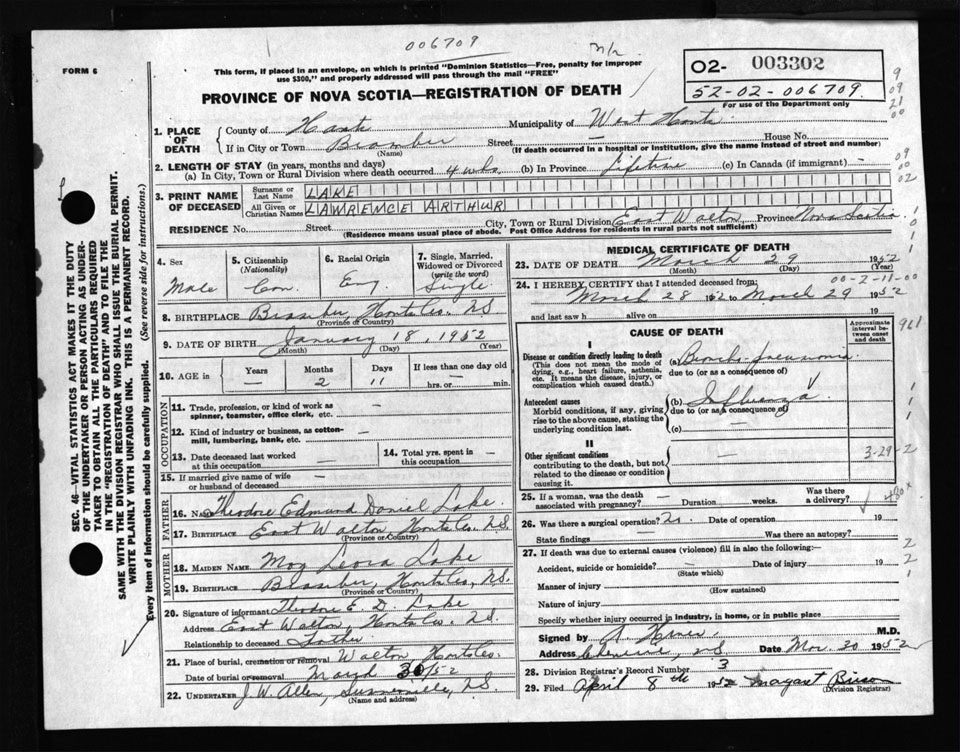 006709
n/r
FORM 6
This form, if placed in an envelope, on which is printed "Dominion Statistics—Free, penalty for improper
use $300," and properly addressed will pass through the mail "FREE"
O2- 003302
52-02-006709.
For use of the Department only
PROVINCE OF NOVA SCOTIA—REGISTRATION OF DEATH
1. PLACE OF DEATH
County of Hants Municipality of West Hants
If in City or Town Bramber Street — House No.
(Name) (If death occurred in a hospital or institution, give the name instead of street and number)
2. LENGTH OF STAY (in years, months and days)
(a) In City, Town or Rural Division where death occurred 4 wks. (b) In Province Lifetime (c) In Canada (if immigrant) —
3. PRINT NAME OF DECEASED
Surname or Last Name LAKE
All Given or Christian Names LAWRENCE ARTHUR
RESIDENCE No. Street City, Town or Rural Division East Walton Province Nova Scotia
(Residence means usual place of abode. Post Office Address for residents in rural parts not sufficient)
4. Sex Male
5. Citizenship (Nationality) Can.
6. Racial Origin Eng.
7. Single, Married, Widowed or Divorced (write the word) Single
8. BIRTHPLACE Bramber, Hants Co. N.S
(Province or Country)
9. DATE OF BIRTH January 18, 1952
(Month) (Day) (Year)
10. AGE in Years — Months 2 Days 11 If less than one day old — hrs. or — min.
OCCUPATION
11. Trade, profession, or kind of work as spinner, teamster, office clerk, etc. —
12. Kind of industry or business, as cotton-mill, lumbering, bank, etc. —
13. Date deceased last worked at this occupation —
14. Total yrs. spent in this occupation —
15. If married give name of wife or husband of deceased —
FATHER
16. Name Theodore Edmund Daniel Lake.
17. BIRTHPLACE East Walton, Hants Co. N.S.
(Province or Country)
MOTHER
18. MAIDEN NAME May Leora Lake
19. BIRTHPLACE Bramber, Hants Co, N.S.
(Province or Country)
20. Signature of informant Theodore E. D. Lake
Address East Walton, Hants Co. N.S.
Relationship to deceased Father
21. Place of burial, cremation or removal Walton Hants Co.
Date of burial or removal March 30/52
22. UNDERTAKER J. W. Allen, N.S.
(Name and address)
MEDICAL CERTIFICATE OF DEATH
23. DATE OF DEATH March 29 1952
(Month) (Day) (Year)
00-2-11-00
24. I HEREBY CERTIFY that I attended deceased from:
March 28 1952 to March 29 1952
and last saw h alive on 19
CAUSE OF DEATH
Approximate interval between onset and death
I
Disease or condition directly leading to death
(This does not mean the mode of dying, e.g., heart failure, asthenia, etc. It means the disease, injury, or complication which caused death.)
(a) Broncho pneumonia
due to (or as a consequence of)
Antecedent causes
Morbid conditions, if any, giving rise to the above cause, stating the underlying condition last.
(b) Influenza
due to (or as a consequence of)
(c) —
II
Other significant conditions
contributing to the death, but not related to the disease or condition causing it.
—
3-29-2
25. If a woman, was the death associated with pregnancy? — Duration weeks. Was there a delivery?
490x
26. Was there a surgical operation? No. Date of operation 19
State findings — Was there an autopsy?
27. If death was due to external causes (violence) fill in also the following:—
Accident, suicide or homicide? — Date of injury 19
(State which)
Manner of injury
(How sustained)
Nature of injury
Specify whether injury occurred in industry, in home, or in public place
Signed by M.D.
Address N.S Date Mar. 30 1952
28. Division Registrar's Record Number 3
29. Filed April 8th 1952
(Division Registrar)
SEC. 46—VITAL STATISTICS ACT MAKES IT THE DUTY
OF THE UNDERTAKER OR PERSON ACTING AS UNDER-
TAKER TO OBTAIN ALL THE PARTICULARS REQUIRED
IN THE "REGISTRATION OF DEATH" AND TO FILE THE
SAME WITH THE DIVISION REGISTRAR WHO SHALL ISSUE THE BURIAL PERMIT.
WRITE PLAINLY WITH UNFADING INK. THIS IS A PERMANENT RECORD.
Every item of Information should be carefully supplied. (See reverse side for instructions.)